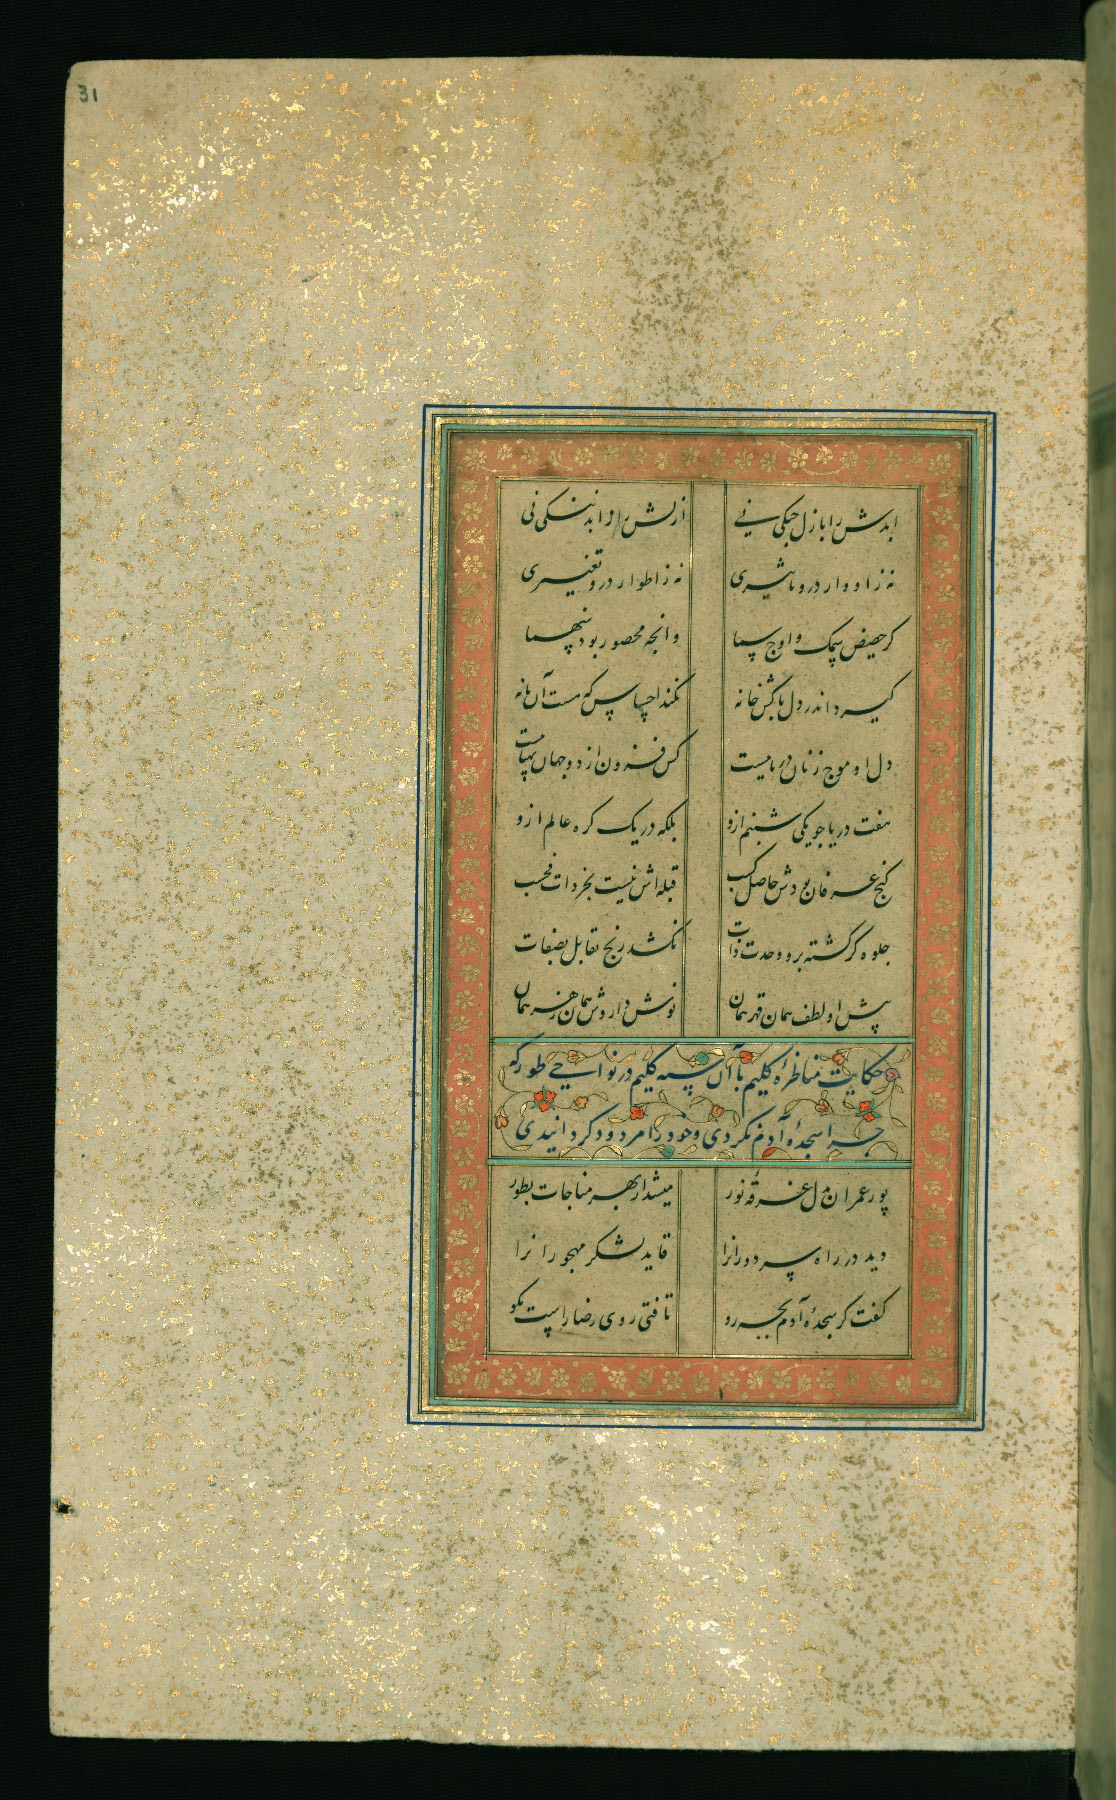 31
ابدش را بازل جنگی نی ازلش را از ابد ننگی نی
نه ز ادوار درو تاثیری نه ز اطوار درو تغییری
کر حضیض سمک و اوج سما وانچه محصور بود بینهما
کیرد اندر دل باکش خانه نکند احساس که هست آن یا نه
دل او موج زنان دریاییست کش فزون از دو جهان پهناییست
هفت دریا جو یکی شبنم ازو بلکه در یک کره عالم ازو
کنج عرفان بودش حاصل کسب قبله اش نیست بجز ذات فحسب
جلوه کر کشته برو وحدت ذات نکشد رنج تقابل بصفات
پیش او لطف همان قهر همان نوش داروش همان زهر همان
حکایت مناظرهٔ کلیم با آن سیه کلیم در نواحی طور که
چرا سجدهٔ آدم نکردی وخود را مردود کردانیدی
پور عمران بدل غرقهٔ نور میشد از بهر مناجات بطور
دید در راه سر دورانرا قاید لشکر مهجورانرا
کفت کز سجدهٔ آدم بچه رو تافتی روی رضا راست بکو